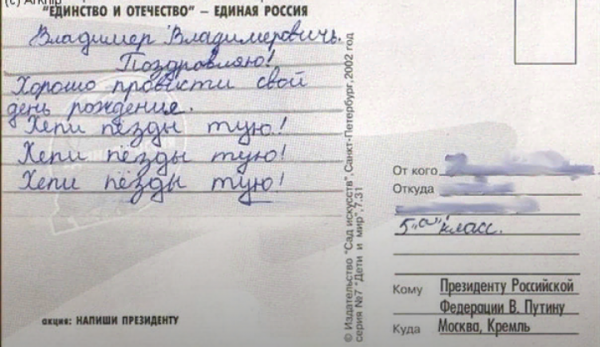 "ЕДИНСТВО И ОТЕЧЕСТВО" – ЕДИНАЯ РОССИЯ
Владимер Владимерович.
Поздровляю!
Хорошо провести свой
день рождения.
Хепи пёзды тую!
Хепи пёзды тую!
Хепи пёзды тую!
акция: НАПИШИ ПРЕЗИДЕНТУ
© Издательство "Сад искусств", Санкт-Петербург, 2002 год
серия №7 "Дети и мир", 7.31
От кого
Откуда
5 "а" класс.
Кому Президенту Российской
Федерации В. Путину
Куда Москва, Кремль